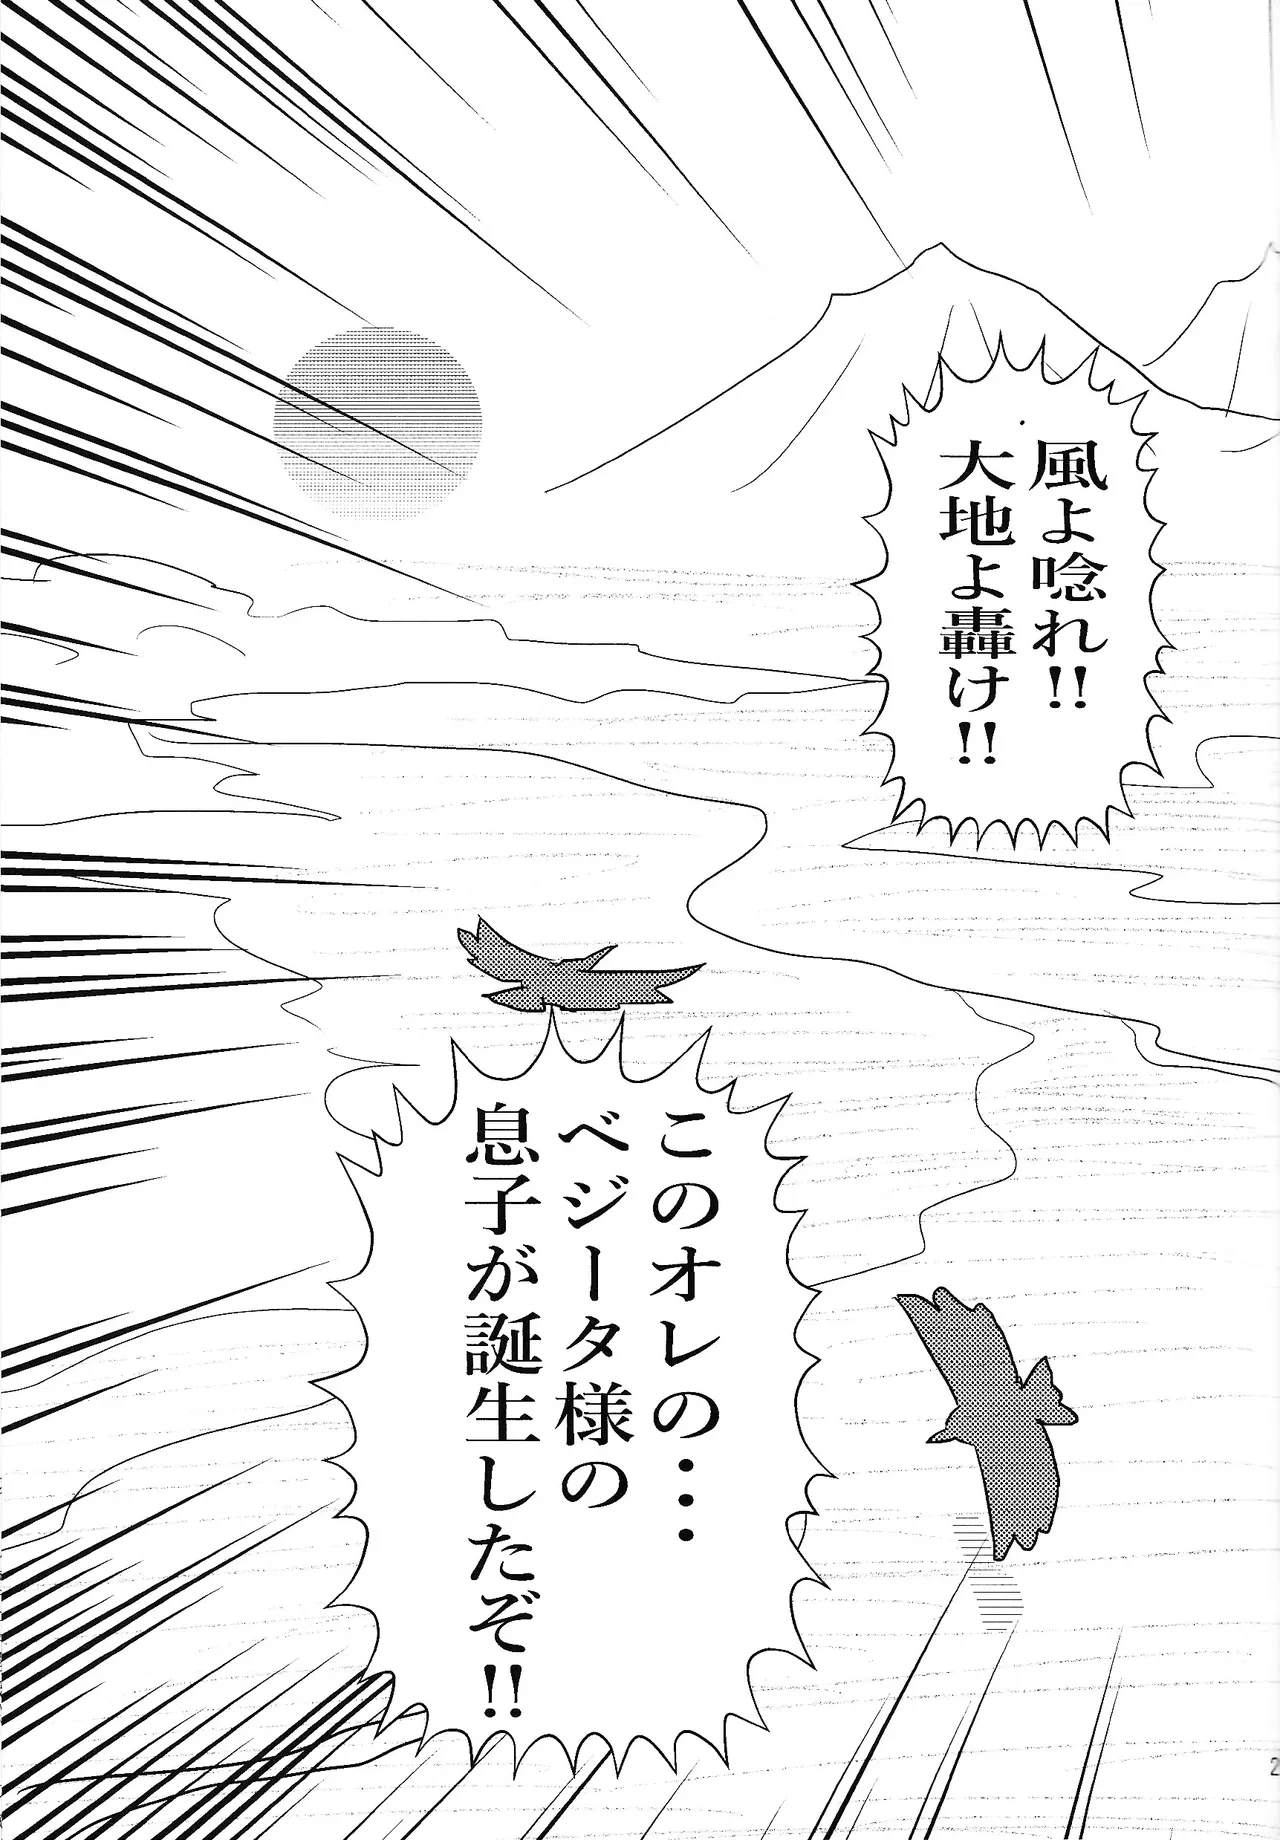 風よ唸れ!!
大地よ轟け!!
このオレの・・・
ベジータ様の
息子が誕生したぞ!!
2